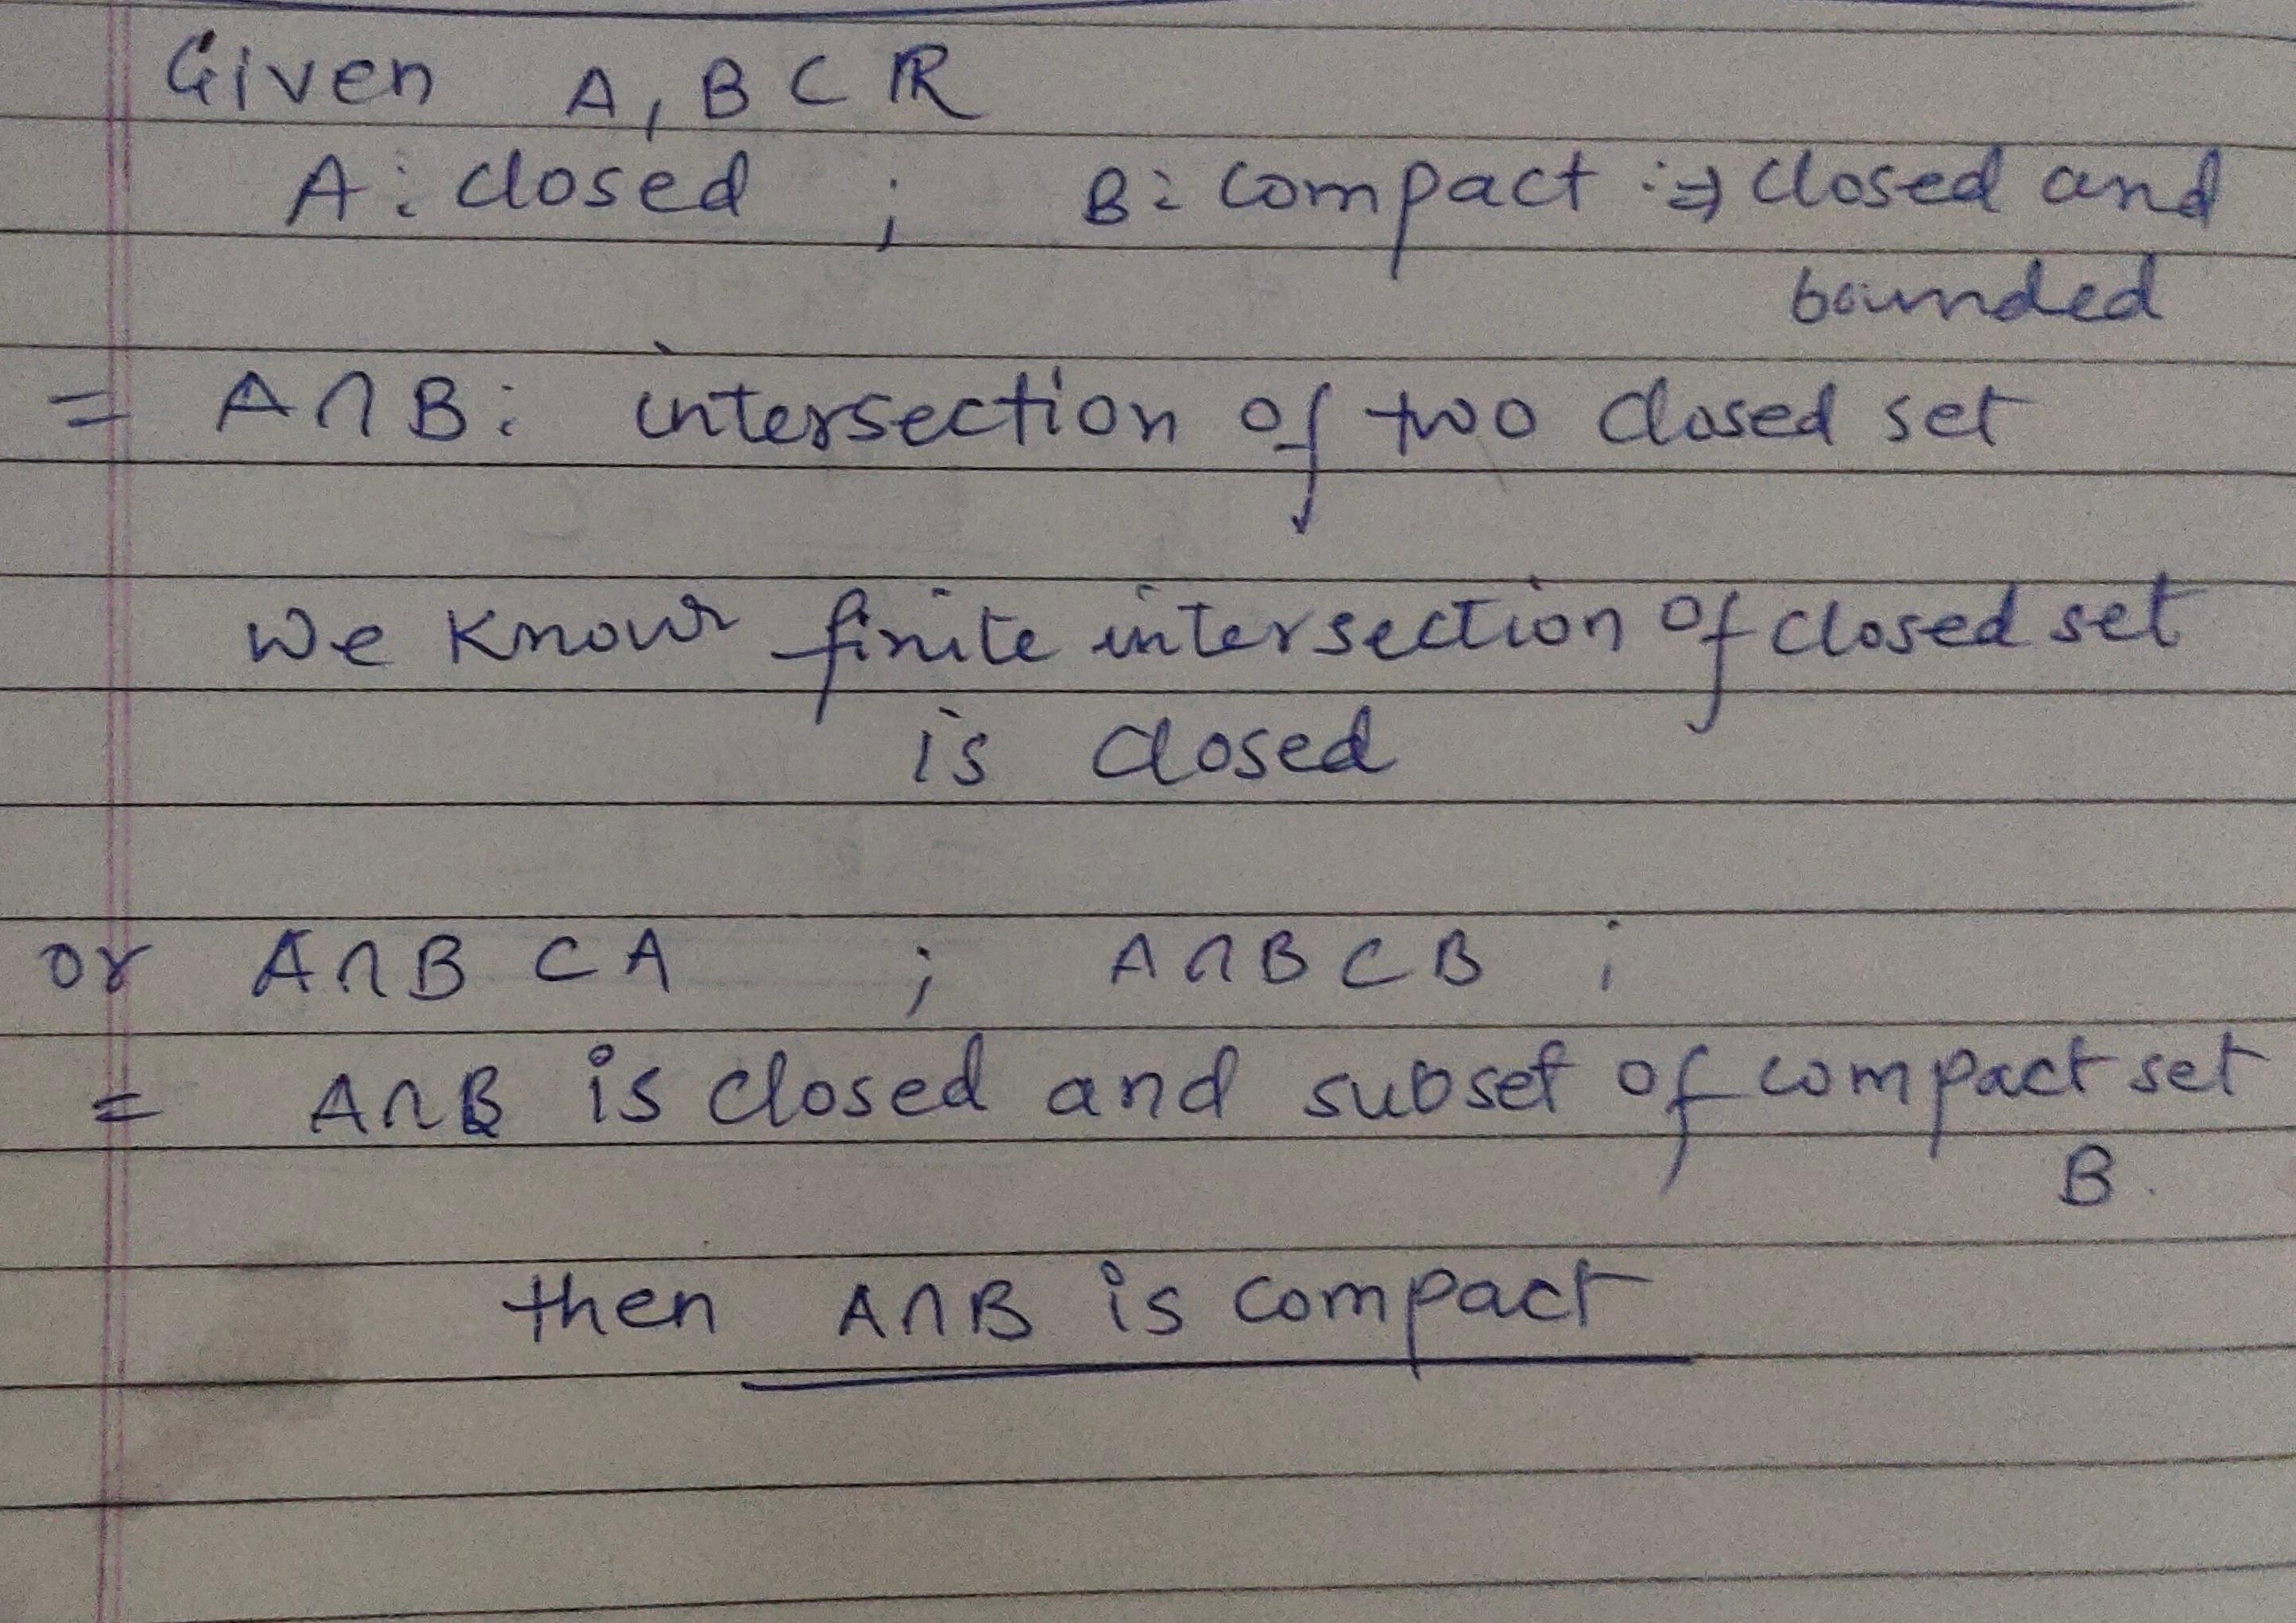 Given A, B ⊂ ℝ
A: closed ; B: compact :⇒ closed and
bounded
= A∩B: intersection of two closed set
We know finite intersection of closed set
is closed
or A∩B ⊂ A ; A∩B ⊂ B ;
= A∩B is closed and subset of compact set
B.
then A∩B is compact